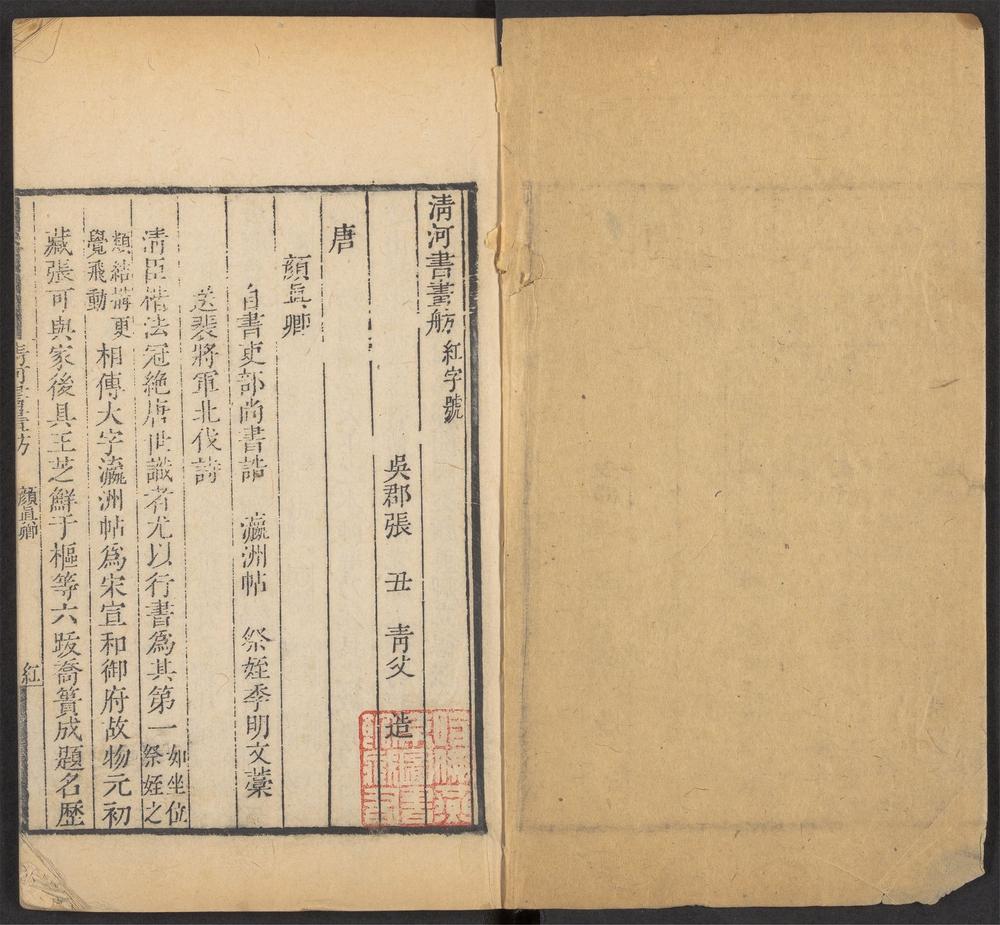 清河書畫舫紅字號
吳郡張 丑 青父 造
唐
顏真卿
自書吏部尚書誥 瀛洲帖 祭姪季明文藁
送裴將軍北伐詩
清臣楷法冠絶唐世識者尤以行書爲其第一如坐位祭姪之
類結搆更覺飛動相傳大字瀛洲帖爲宋宣和御府故物元初
藏張可與家後具王芝鮮于樞等六跋喬簣成題名歷
清河書畫舫 顏真卿 紅一